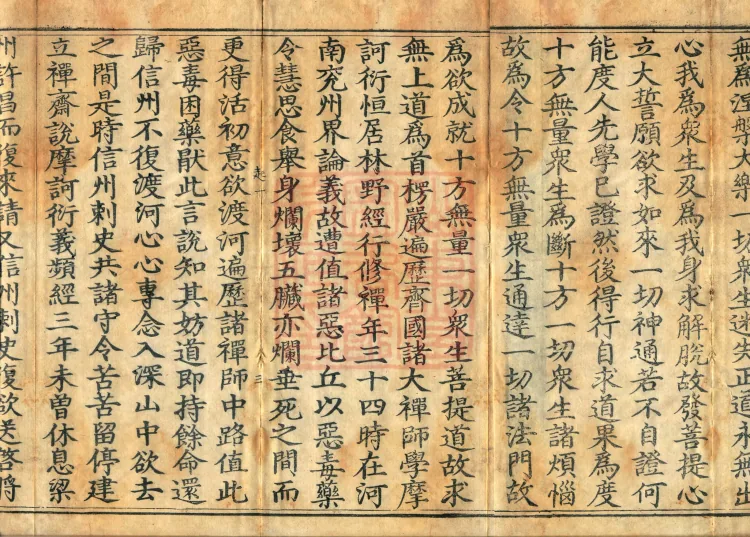 無為涅槃大樂一切衆生迷失正道永無出
心我爲衆生及爲我身求解脫故發菩提心
立大誓願欲求如來一切神通若不自證何
能度人先學已證然後得行自求道果爲度
十方無量衆生爲斷十方一切衆生諸煩惱
故爲令十方無量衆生通達一切諸法門故
爲欲成就十方無量一切衆生菩提道故求
無上道爲首楞嚴遍歷齊國諸大禪師學摩
訶衍恒居林野經行修禪年三十四時在河
南兖州界論義故遭值諸惡比丘以惡毒藥
令慧思食舉身爛壞五臟亦爛垂死之間而
起一
三
更得活初意欲渡河遍歷諸禪師中路值此
惡毒困藥猒此言說知其妨道即持餘命還
歸信州不復渡河心心專念入深山中欲去
之間是時信州刺史共諸守令苦苦留停建
立禪齋說摩訶衍義頻經三年未曾休息梁
州許昌而復來請又信州刺史復欲送啓將